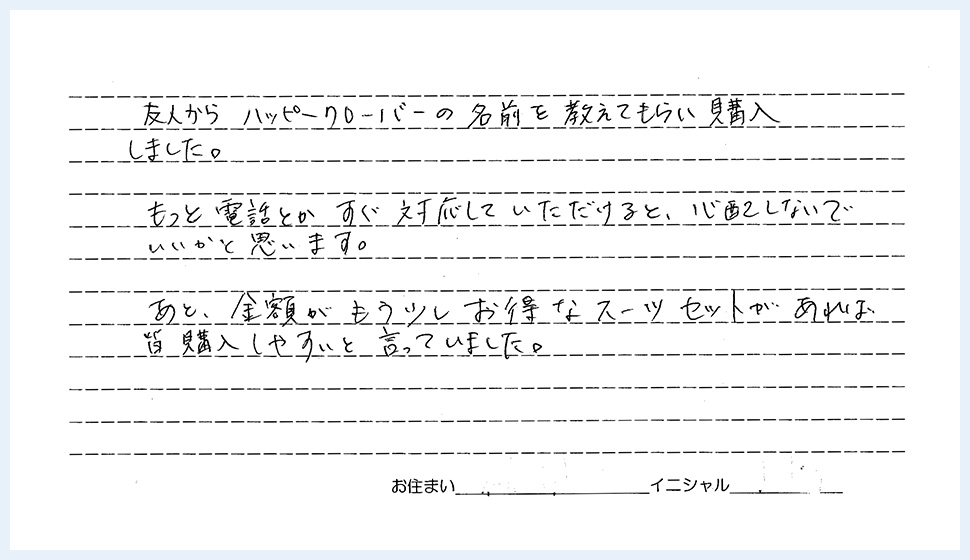 友人から ハッピークローバーの 名前を 教えてもらい 購入
しました。
もっと 電話とか すぐ 対応して いただけると、心配しないで
いいかと 思います。
あと、金額が もう少し お得な スーツ セットが あれば
皆 購入しやすいと 言っていました。
お住まい イニシャル